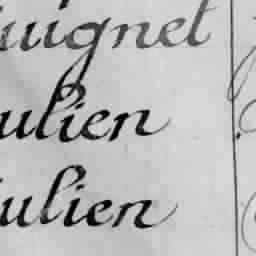 uignet
ulien
ulien